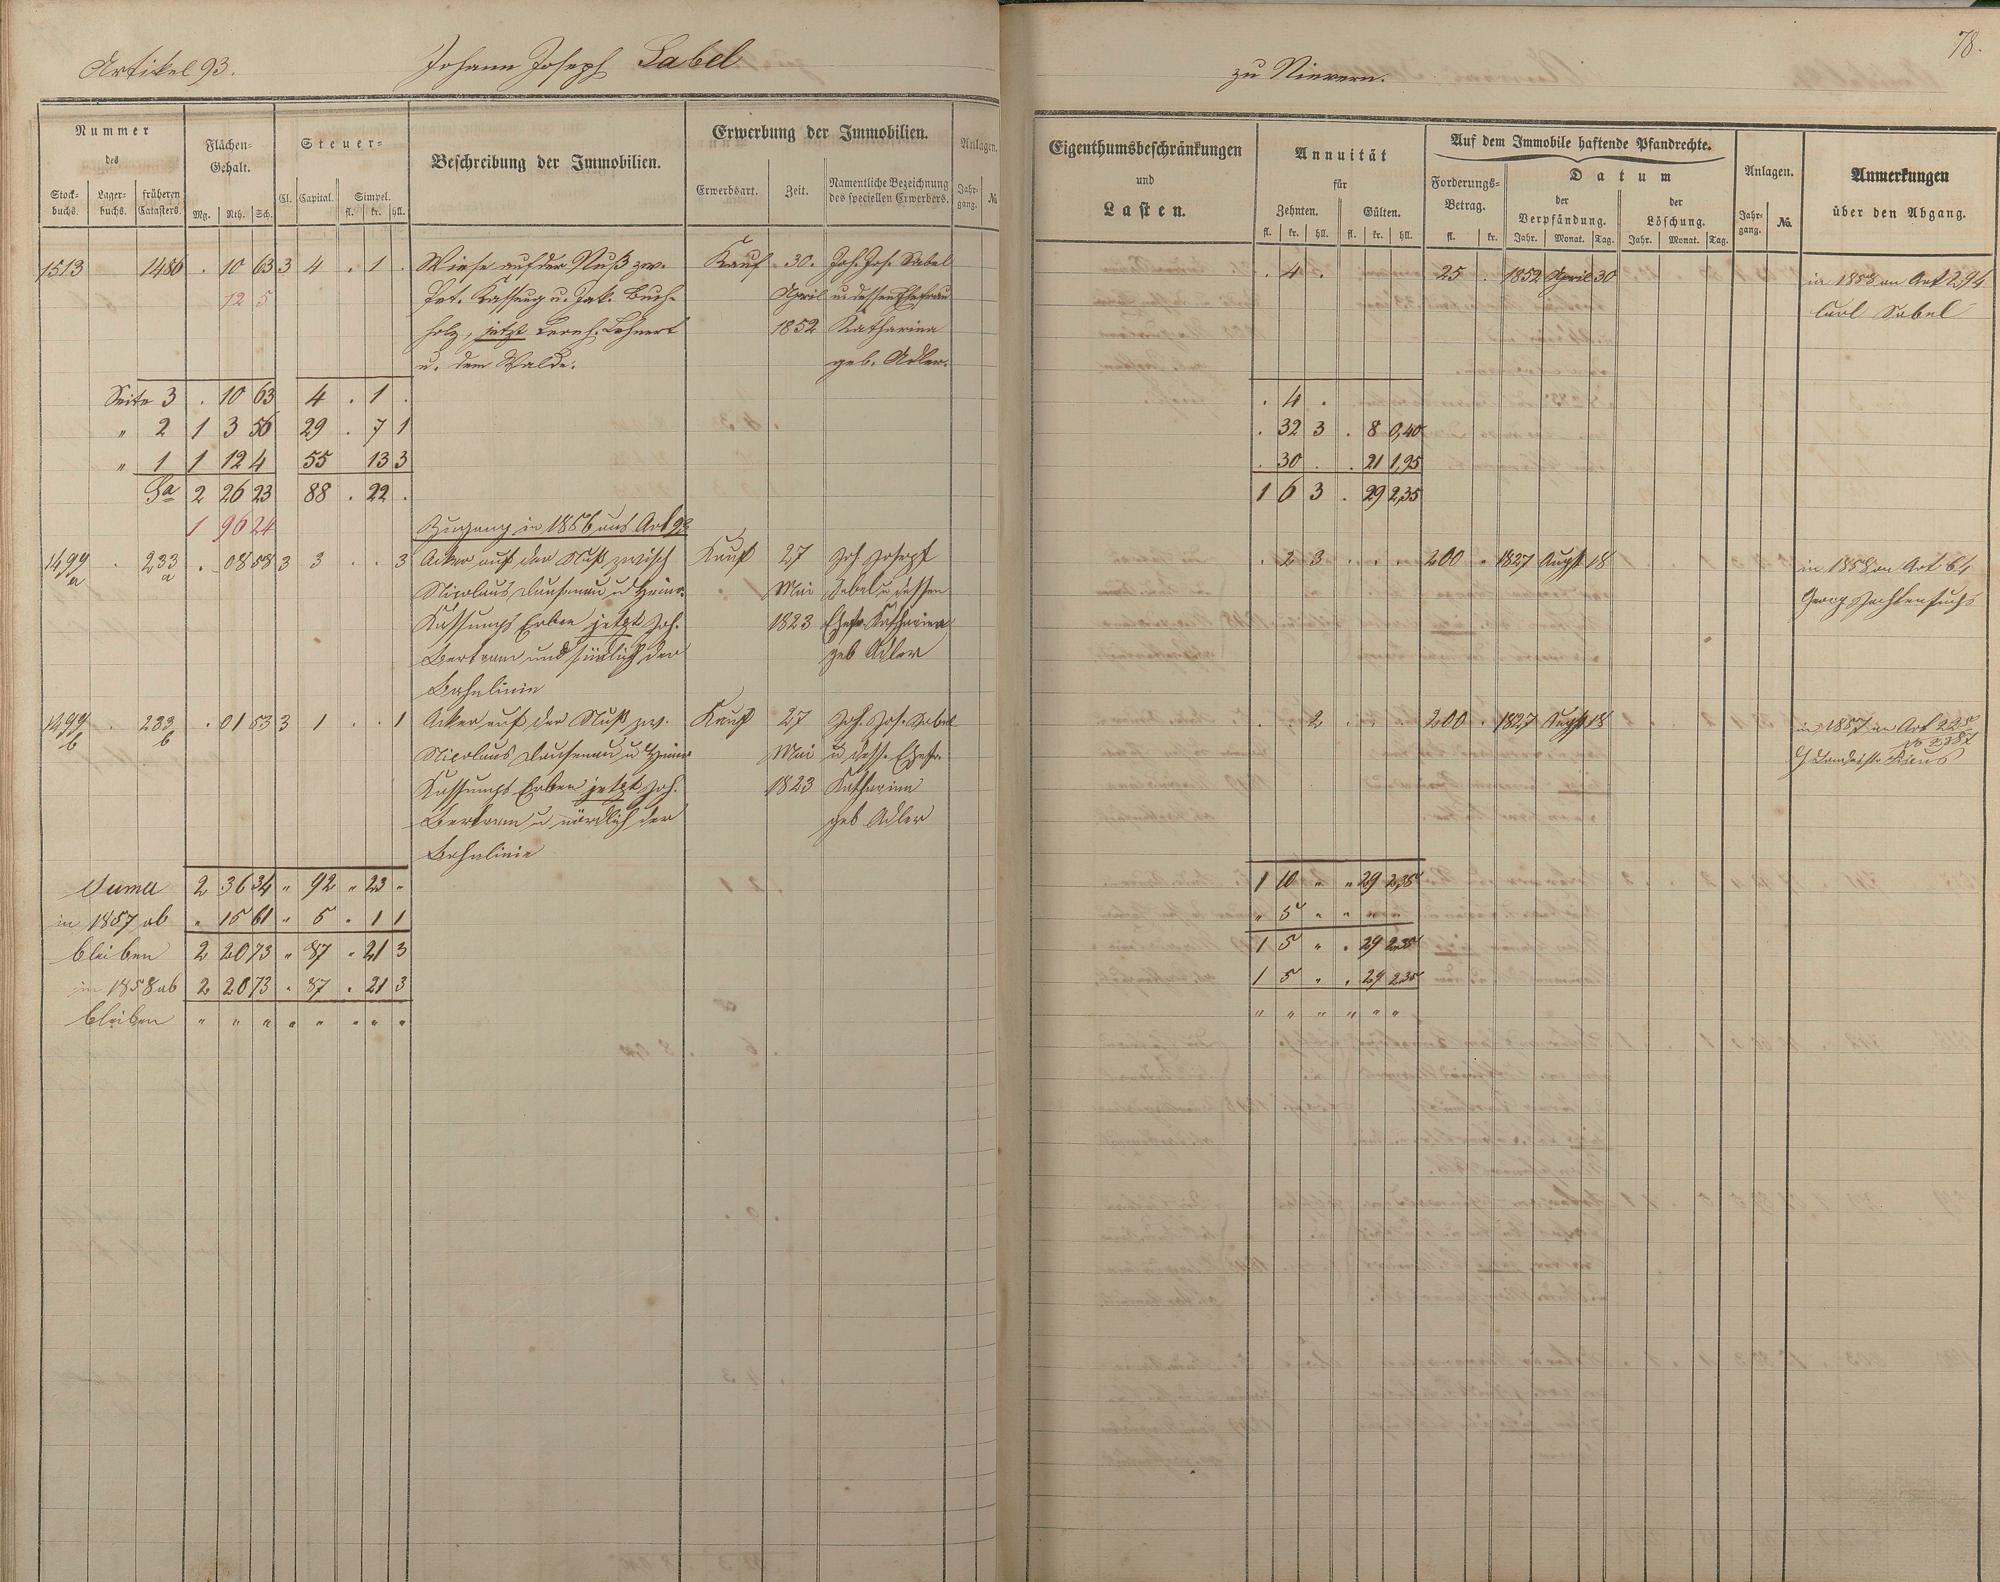 Artikel 93. Johann Joseph Sabel zu Nievern. 78.
Nummer des
Stock-buchs. Lager-buchs. früheren Catasters.
Flächen-Gehalt.
Mg. Rth. Sch.
Steuer-
Cl. Capital. Simpel.
fl. kr. hll.
Beschreibung der Immobilien.
Erwerbung der Immobilien.
Erwerbsart. Zeit. Namentliche Bezeichnung des speciellen Erwerbers.
Anlagen.
Jahr-gang. №
Eigenthumsbeschränkungen und Lasten.
Annuität für
Zehnten. Gülten.
fl. kr. hll. fl. kr. hll.
Auf dem Immobile haftende Pfandrechte.
Forderungs-Betrag.
fl. kr.
Datum
der Verpfändung. der Löschung.
Jahr. Monat. Tag. Jahr. Monat. Tag.
Anlagen.
Jahr-gang. No.
Anmerkungen über den Abgang.
1513 1486 . 10 63 3 4 . 1 . Wiese auf der Nuß zw. Kauf 30. Joh. Jos. Sabel . 4 . 25 . 1852 April 30 in 1858 an Art 294
12 5 Pet. Kassung u. Jak. Buch- April u. dessen Ehefrau Carl Sabel
holz, jetzt Bernh. Lehnert 1852 Katharina
u. dem Walde. geb. Adler.
Seite 3 . 10 63 4 . 1 . . 4 .
" 2 1 3 56 29 . 7 1 . 32 3 . 8 0,40
" 1 1 12 4 55 13 3 . 30 . . 21 1,95
Sa 2 26 23 88 . 22 . 1 6 3 . 29 2,35
1 96 24 Zugang in 1856 aus Art 93
1499 a . 233 a . 08 58 3 3 . . 3 Acker auf der Nuß zwisch Kauf 27 Joh Joseph . 2 3 . . . 200 . 1827 Augst 18 in 1858 an Art 64
Nicolaus Dausenau u Heinr. Mai Sabel u dessen Georg Hachenfuchs
Kassungs Erben jetzt Joh. 1823 Ehefr Katharina
Bertram und südlich der geb Adler
Bahnlinie
1499 b . 233 b . 01 53 3 1 . . 1 Acker auf der Nuß zw. Kauf 27 Joh. Jos. Sabel . . 2 . . . 200 . 1827 Augst 18 in 1857 an Art 225
Nicolaus Dausenau u Heinr Mai u desse Ehefr.
Kassungs Erben jetzt Joh. 1823 Katharina
Bertram u nördlich der geb Adler
Bahnlinie
Suma 2 36 34 " 92 " 23 " 1 10 " " 29 2,35
in 1857 ab " 15 61 " 5 " 1 1 " 5 " " " "
bleiben 2 20 73 " 87 " 21 3 1 5 " " 29 2,35
in 1858 ab 2 20 73 " 87 " 21 3 1 5 " " 29 2,35
bleiben " " " " " " " " " " " " " "